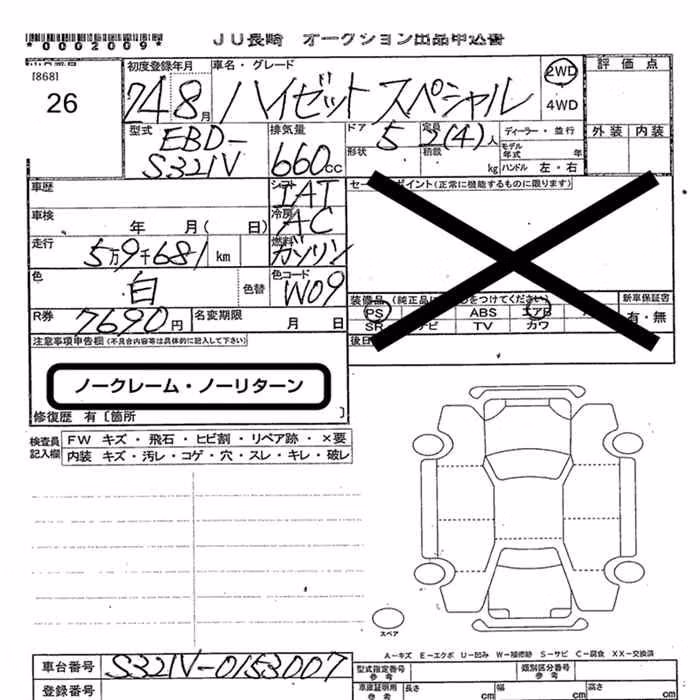 JU長崎 オークション出品申込書
*0002009*
[868]
26
初度登録年月 車名・グレード
24 8月 ハイゼット スペシャル
2WD
4WD
評価点
外装 内装
型式 EBD-S321V
排気量 660cc
ドア 5
形状
定員 2(4)人
積載 kg
ディーラー・並行
モデル年式 年
ハンドル 左・右
車歴
シフト IAT
セールスポイント(正常に機能するものに限ります)
車検 年 月( 日)
冷房 AC
走行 5万9千681 km
燃料 ガソリン
色 白
色替
色コード W09
装備品(純正品に○をつけてください)
新車保証書
PS ABS エアB
SR ナビ TV カワ
有・無
R券 7690円
名変期限 月 日
後日
注意事項申告欄(不具合内容等は具体的に記入して下さい)
ノークレーム・ノーリターン
修復歴 有〔箇所 〕
検査員記入欄
FW キズ・飛石・ヒビ割・リペア跡・×要
内装 キズ・汚レ・コゲ・穴・スレ・キレ・破レ
スペア
A-キズ E-エクボ U-凹み W-補修跡 S-サビ C-腐食 XX-交換済
車台番号 S321V-0153007
登録番号
型式指定番号 参考
類別区分番号 参考
車庫証明用 参考
長さ cm
幅 cm
高さ cm